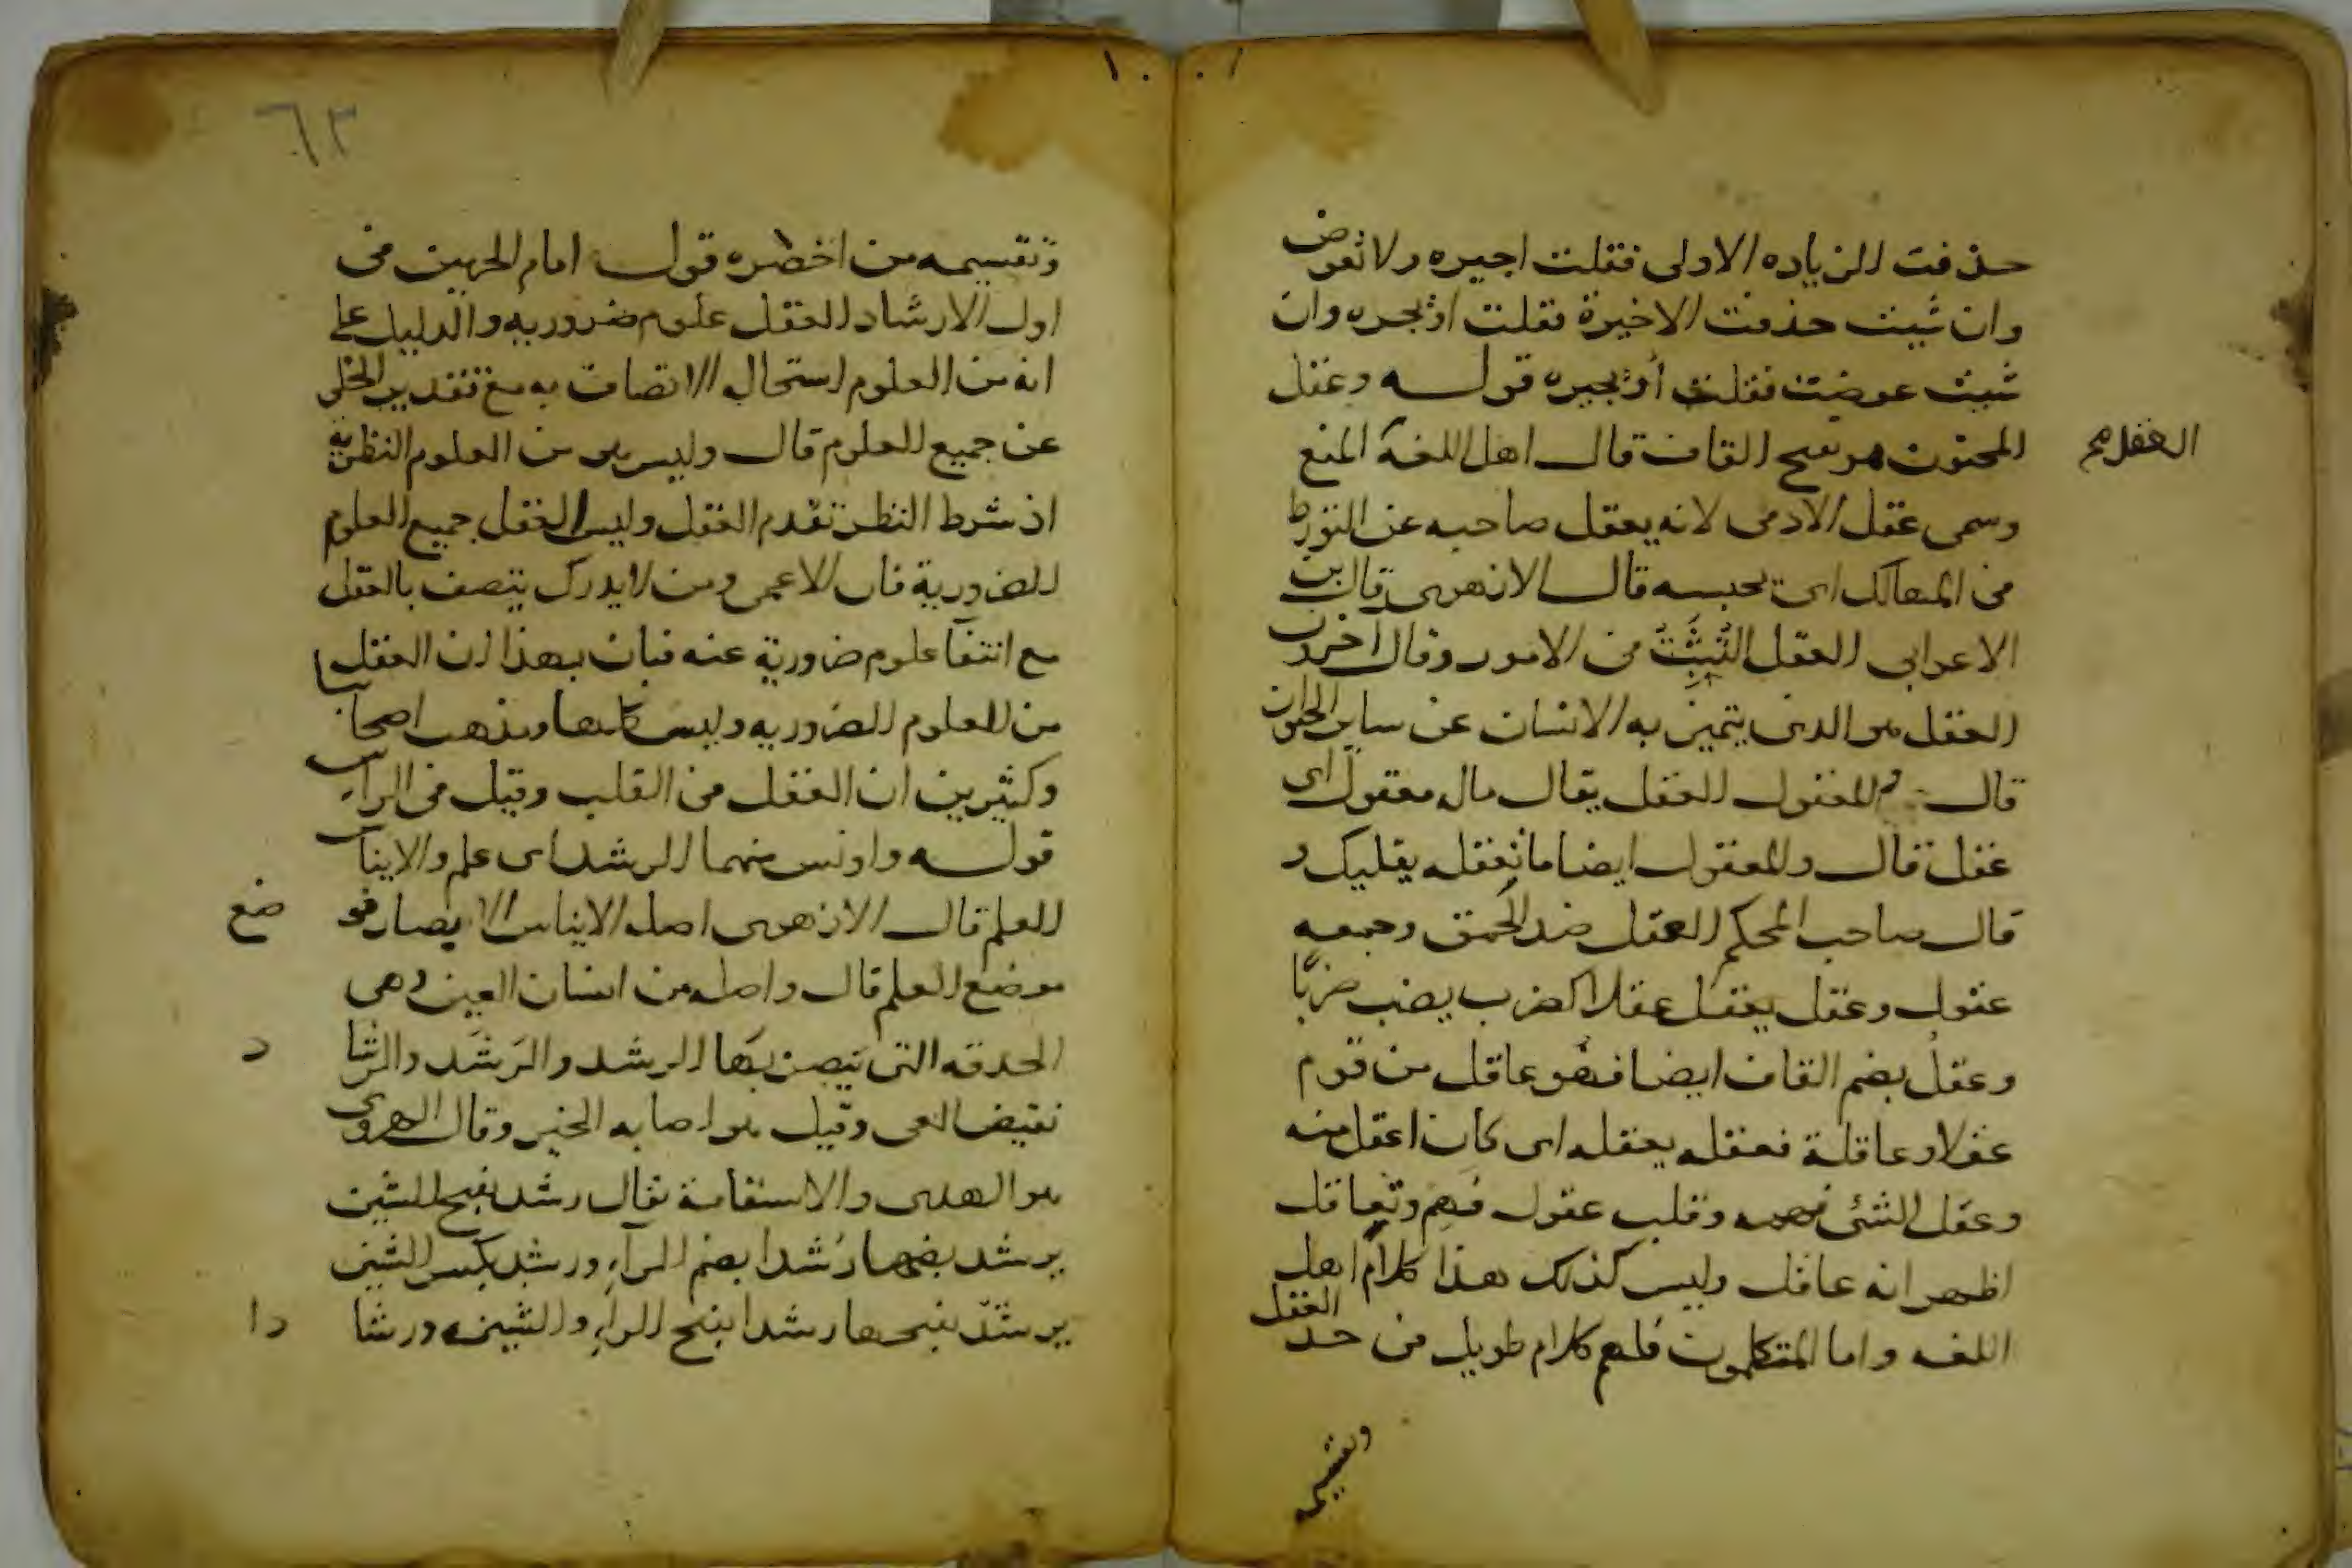 حذفت الزياده الاولى فقلت اجيره ولا تعوض
وان شيت حذفت الاخيرة فقلت اذيجره وان
شيت عوضت فقلت أذيجيره قولـه وعقل
المجنون هو بفتح القاف قال اهل اللغة المنع
العقل
وسمى عقل الادمى لانه يعقل صاحبه عن التورط
فى المهالك اى يحبسه قال الازهرى قال ابن
الاعرابى العقل التثبت فى الامور وقال آخرون
العقل هو الذى يتميز به الانسان عن ساير الحيوان
قال والمعقول العقل يقال ماله معقول اى
عقل قال والمعقول ايضا ما تعقله بقلبك و
قال صاحب المحكم العقل ضد الحمق وجمعه
عقول وعقل يعقل عقلا كضرب يضرب ضربا
وعقل بضم القاف ايضا فهو عاقل من قوم
عقلا وعاقلة فعقله يعقله اى كان اعقل منه
وعقل الشئ فهمه وقلب عقول فهم وتعاقل
اظهر انه عاقل وليس كذلك هذا كلام اهل
اللغه واما المتكلمون فلهم كلام طويل فى حد العقل
وتقسيمه
١٠٠
٦٣
وتقسيمه من اخصره قول امام الحرمين فى
اول الارشاد العقل علوم ضروريه والدليل على
انه من العلوم استحاله الاتصاف به مع تقدير الخلى
عن جميع العلوم قال وليس هو من العلوم النظرية
اذ شرط النظر تقدم العقل وليس العقل جميع العلوم
الضرورية فان الاعمى ومن لا يدرك يتصف بالعقل
مع انتفآ علوم ضرورية عنه فبان بهذا ان العقل
من العلوم الضروريه وليس كلها ومذهب اصحابنا
وكثيرين ان العقل فى القلب وقيل فى الراس
قولـه واونس منهما الرشد اى علم والايناس
العلم قال الازهرى اصل الايناس الابصار فو ضع
موضع العلم قال واصله من انسان العين وهى
الحدقه التى يبصر بها الرشد والرشد والرشا د
نقيض الغى وقيل هو اصابه الخير وقال الهروى
هو الهدى والاستقامة يقال رشد بفتح الشين
يرشد بضمها رشدا بضم الرآء ورشد بكسر الشين
يرشد بفتحها رشدا بفتح الرآء والشين ورشا دا